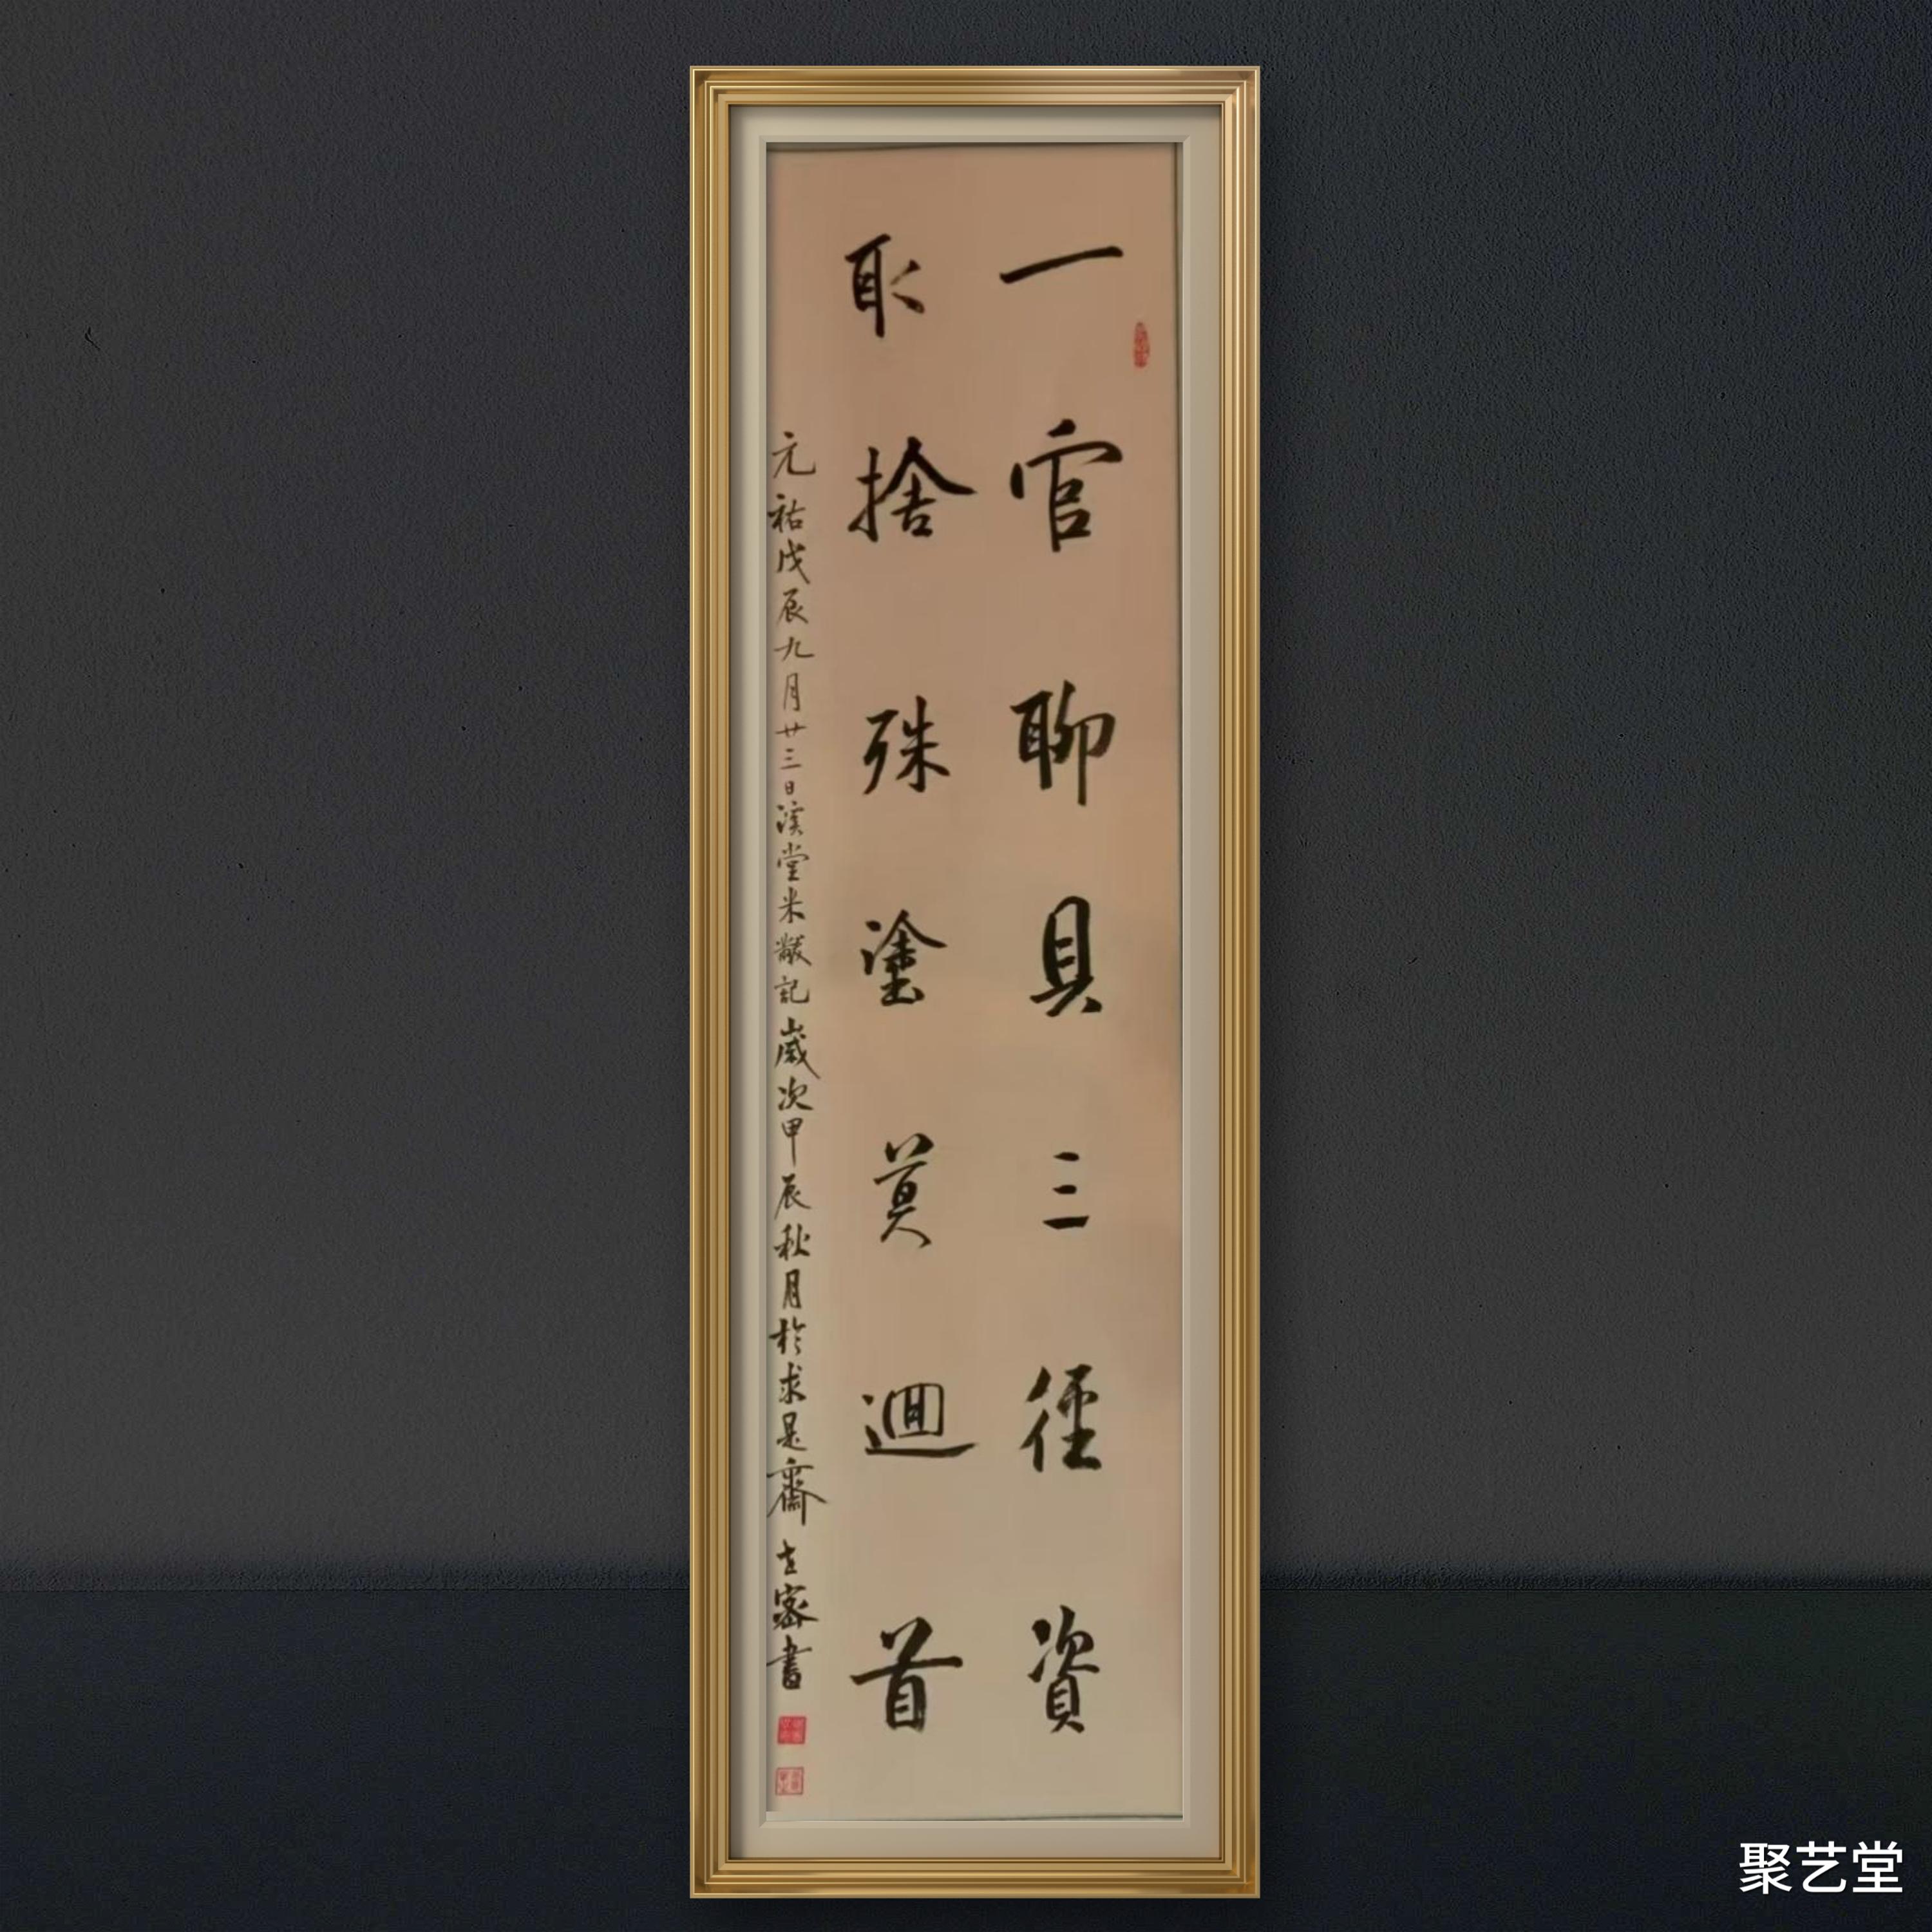 一官聊具三徑資
取捨殊塗莫迴首
元祐戊辰九月廿三日溪堂米黻記歲次甲辰秋月於求是齋志密書
聚艺堂